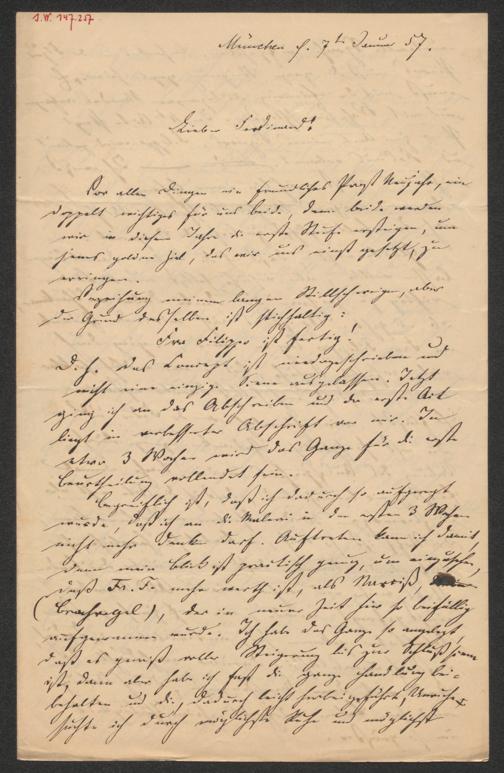 I.N. 147.257
München d. 7ten Januar 57.
Lieber Ferdinand!
Vor allen Dingen ein freundliches Prost Neujahr, ein
doppelt wichtiges für uns beide, denn beide werden
wir in diesem Jahr die erste Stufe ersteigen, um
jenes goldne Ziel, das wir uns einst gesetzt, zu
erringen.
Verzeihung meinem langen Stillschweigen, aber
der Grund desselben ist stichhaltig:
Fra Filippo ist fertig!
D. h. das Concept ist niedergeschrieben und
nicht eine einzige Scene ausgelassen. Jetzt
ging ich an das Abschreiben und der erste Act
liegt in verbesserter Abschrift vor mir. In
etwa 3 Wochen wird das Ganze für die erste
Beurtheilung vollendet sein.
Begreiflich ist, daß ich dadurch so aufgeregt
wurde, daß ich an die Malerei in den ersten 3 Wochen
nicht mehr denken darf. Auftreten kann ich damit,
denn mein Blick ist practisch genug, um einzusehen,
daß Fr. F. mehr werth ist, als Narciß,
(Brachvogel), der in neuer Zeit hier so beifällig
aufgenommen wurde. Ich habe das Ganze so angelegt,
daß es gewiß voller Steigerung bis zur Schlußscene
ist, dann aber habe ich fast die ganze Handlung bei-
behalten und die dadurch leicht herbeigeführte Unruhe
suchte ich durch möglichste Ruhe und möglichst